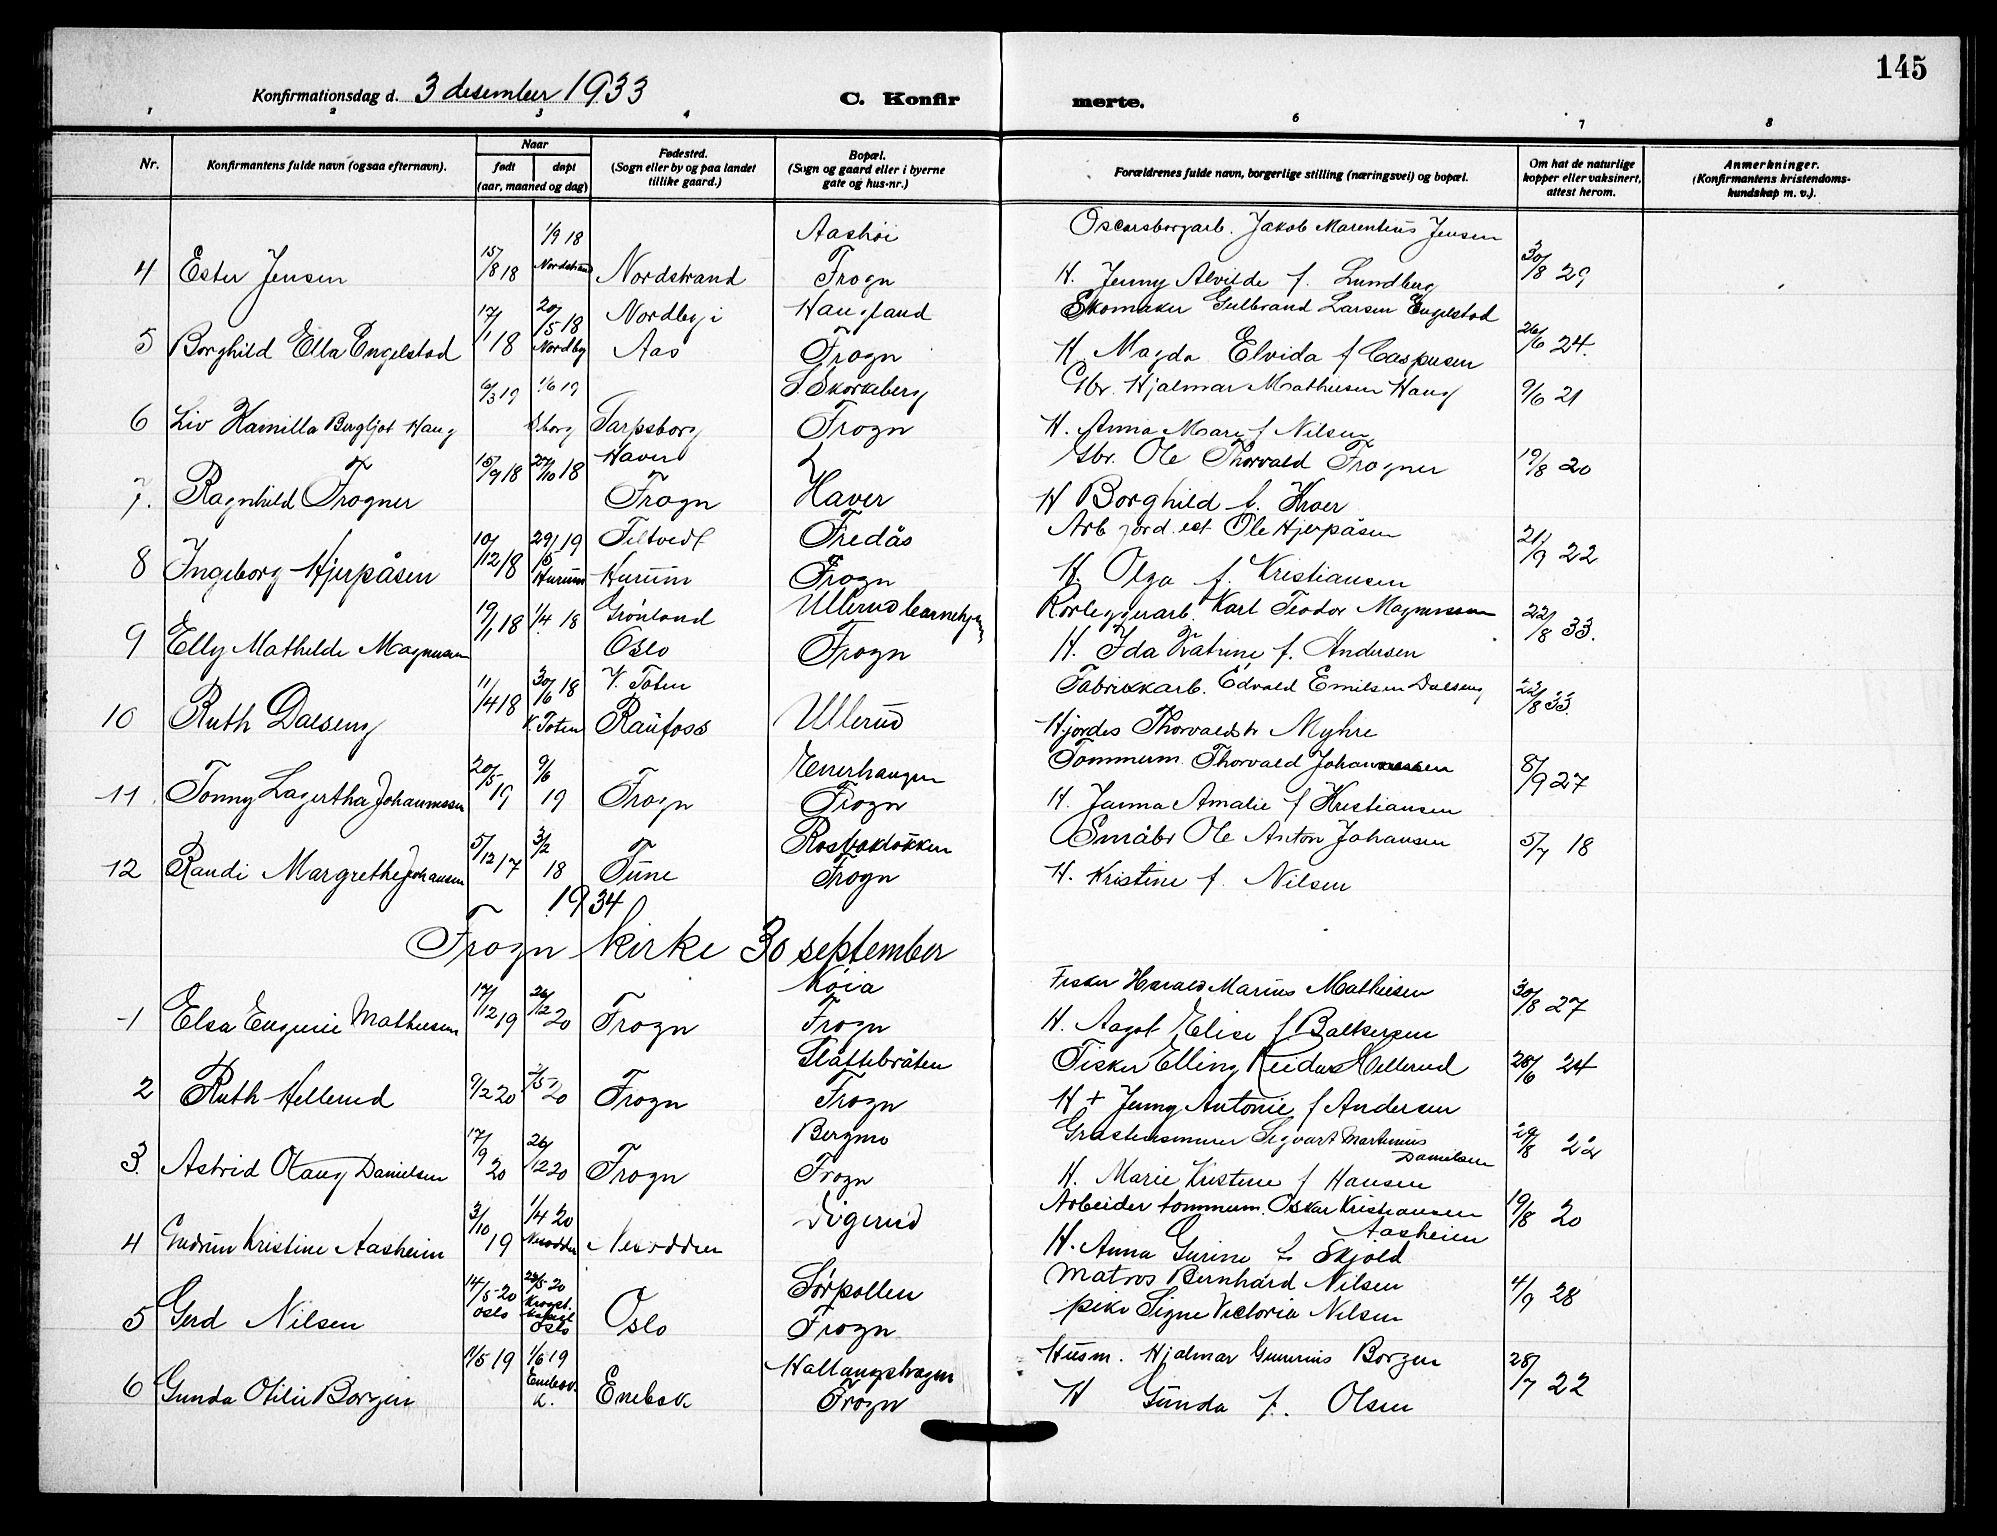 145
Konfirmationsdag d. 3 desember 1933
C. Konfirmerte.
1 2 3 4 6 7 8
Nr.
Konfirmantens fulde navn (ogsaa efternavn).
Naar
født døpt
(aar, maaned og dag)
Fødested.
(Sogn eller by og paa landet
tillike gaard.)
Bopæl.
(Sogn og gaard eller i byerne
gate og hus-nr.)
Forældrenes fulde navn, borgerlige stilling (næringsvei) og bopæl.
Om hat de naturlige
kopper eller vaksinert,
attest herom.
Anmerkninger.
(Konfirmantens kristendoms-
kundskap m. v.).
1/9 18 Aashøi Oscarsborgarb. Jakob Marentius Jensen
4 Ester Jensen 15/8 18 Nordstrand Nordstrand Frogn H. Jenny Alvilde f. Lundberg 30/8 29
17/1 18 20/5 18 Nordby i Haugland Skomaker Gulbrand Larsen Engelstad
5 Borghild Ella Engelstad Nordby Aas Frogn H. Magda Elvida f Caspersen 26/6 24.
6/3 19 1/6 19 S. Skorkeberg Gbr. Hjalmar Mathisen Haug 9/6 21
6 Liv Kamilla Bergljot Haug Sborg Sarpsborg Frogn H. Anna Marie f Nilsen
15/9 18 27/10 18 Haver Gbr. Ole Thorvald Frogner 19/8 20
7. Ragnhild Frogner Frogn Haver H Borghild f. Kroer
10/12 18 29/5 19 Filtvedt Fredås Arb jord. est Ole Hjerpåsen
8 Ingeborg Hjerpåsen Hurum Hurum Frogn H. Olga f. Kristiansen 21/9 22
19/1 18 1/4 18 Grønland Ullerud barnehjem Rørleggerarb. Karl Teodor Magnussen 22/8 33.
9 Elly Mathilde Magnussen Oslo Frogn H. Ida Katrine f. Andersen
11/4 18 30/6 18 V. Toten Fabrikkarb. Edvald Emilsen Dalseng 22/8 33.
10 Ruth Dalseng V. Toten Raufoss Ullerud Hjørdis Thorvaldsdtr Myhre
20/5 19 9/6 19 Enerhaugen Tømmerm. Thorvald Johannessen 8/9 27
11. Tonny Lagertha Johannessen Frogn Frogn H. Janna Amalie f Kristiansen
5/12 17 3/2 18 Rosbakløkken Småbr Ole Anton Johansen 5/7 18
12 Randi Margrethe Johansen Tune Frogn H. Kristine f. Nilsen
1934
Frogn kirke 30 september
17/12 19 26/12 20 Køia Fisker Harald Marius Mathisen
1 Elsa Eugenie Mathisen Frogn Frogn H. Aagot Elise f Baltzersen 30/8 27
Slåttebråten Fisker Elling Reidar Hellerud 28/6 24
2 Ruth Hellerud 9/2 20 20 Frogn Frogn H + Jenny Antonie f Andersen
17/9 20 26/12 20 Bergmo Sigvart Martinius
Danielsen
3. Astrid Olaug Danielsen Frogn Frogn H. Marie Kristine f Hansen 29/8 22
3/10 19 1/4 20 Digerud Arbeider tømmerm. Oskar Kristiansen
Aasheim
4 Gudrun Kristine Aasheim Nesodden Nesodden H. Anna Gurine f. Skjold 19/8 20
14/5 20 Oslo 20 Oslo Sørpollen Matros Bernhard Nilsen 4/9 28
5 Gerd Nilsen Oslo Frogn pike Signe Victoria Nilsen
11/5 19 1/6 19 Hallangstvagen Husm. Hjalmar Gunerius Borgen 28/7 22
6 Gunda Otilie Borgen Enebak Frogn H Gunda f. Olsen